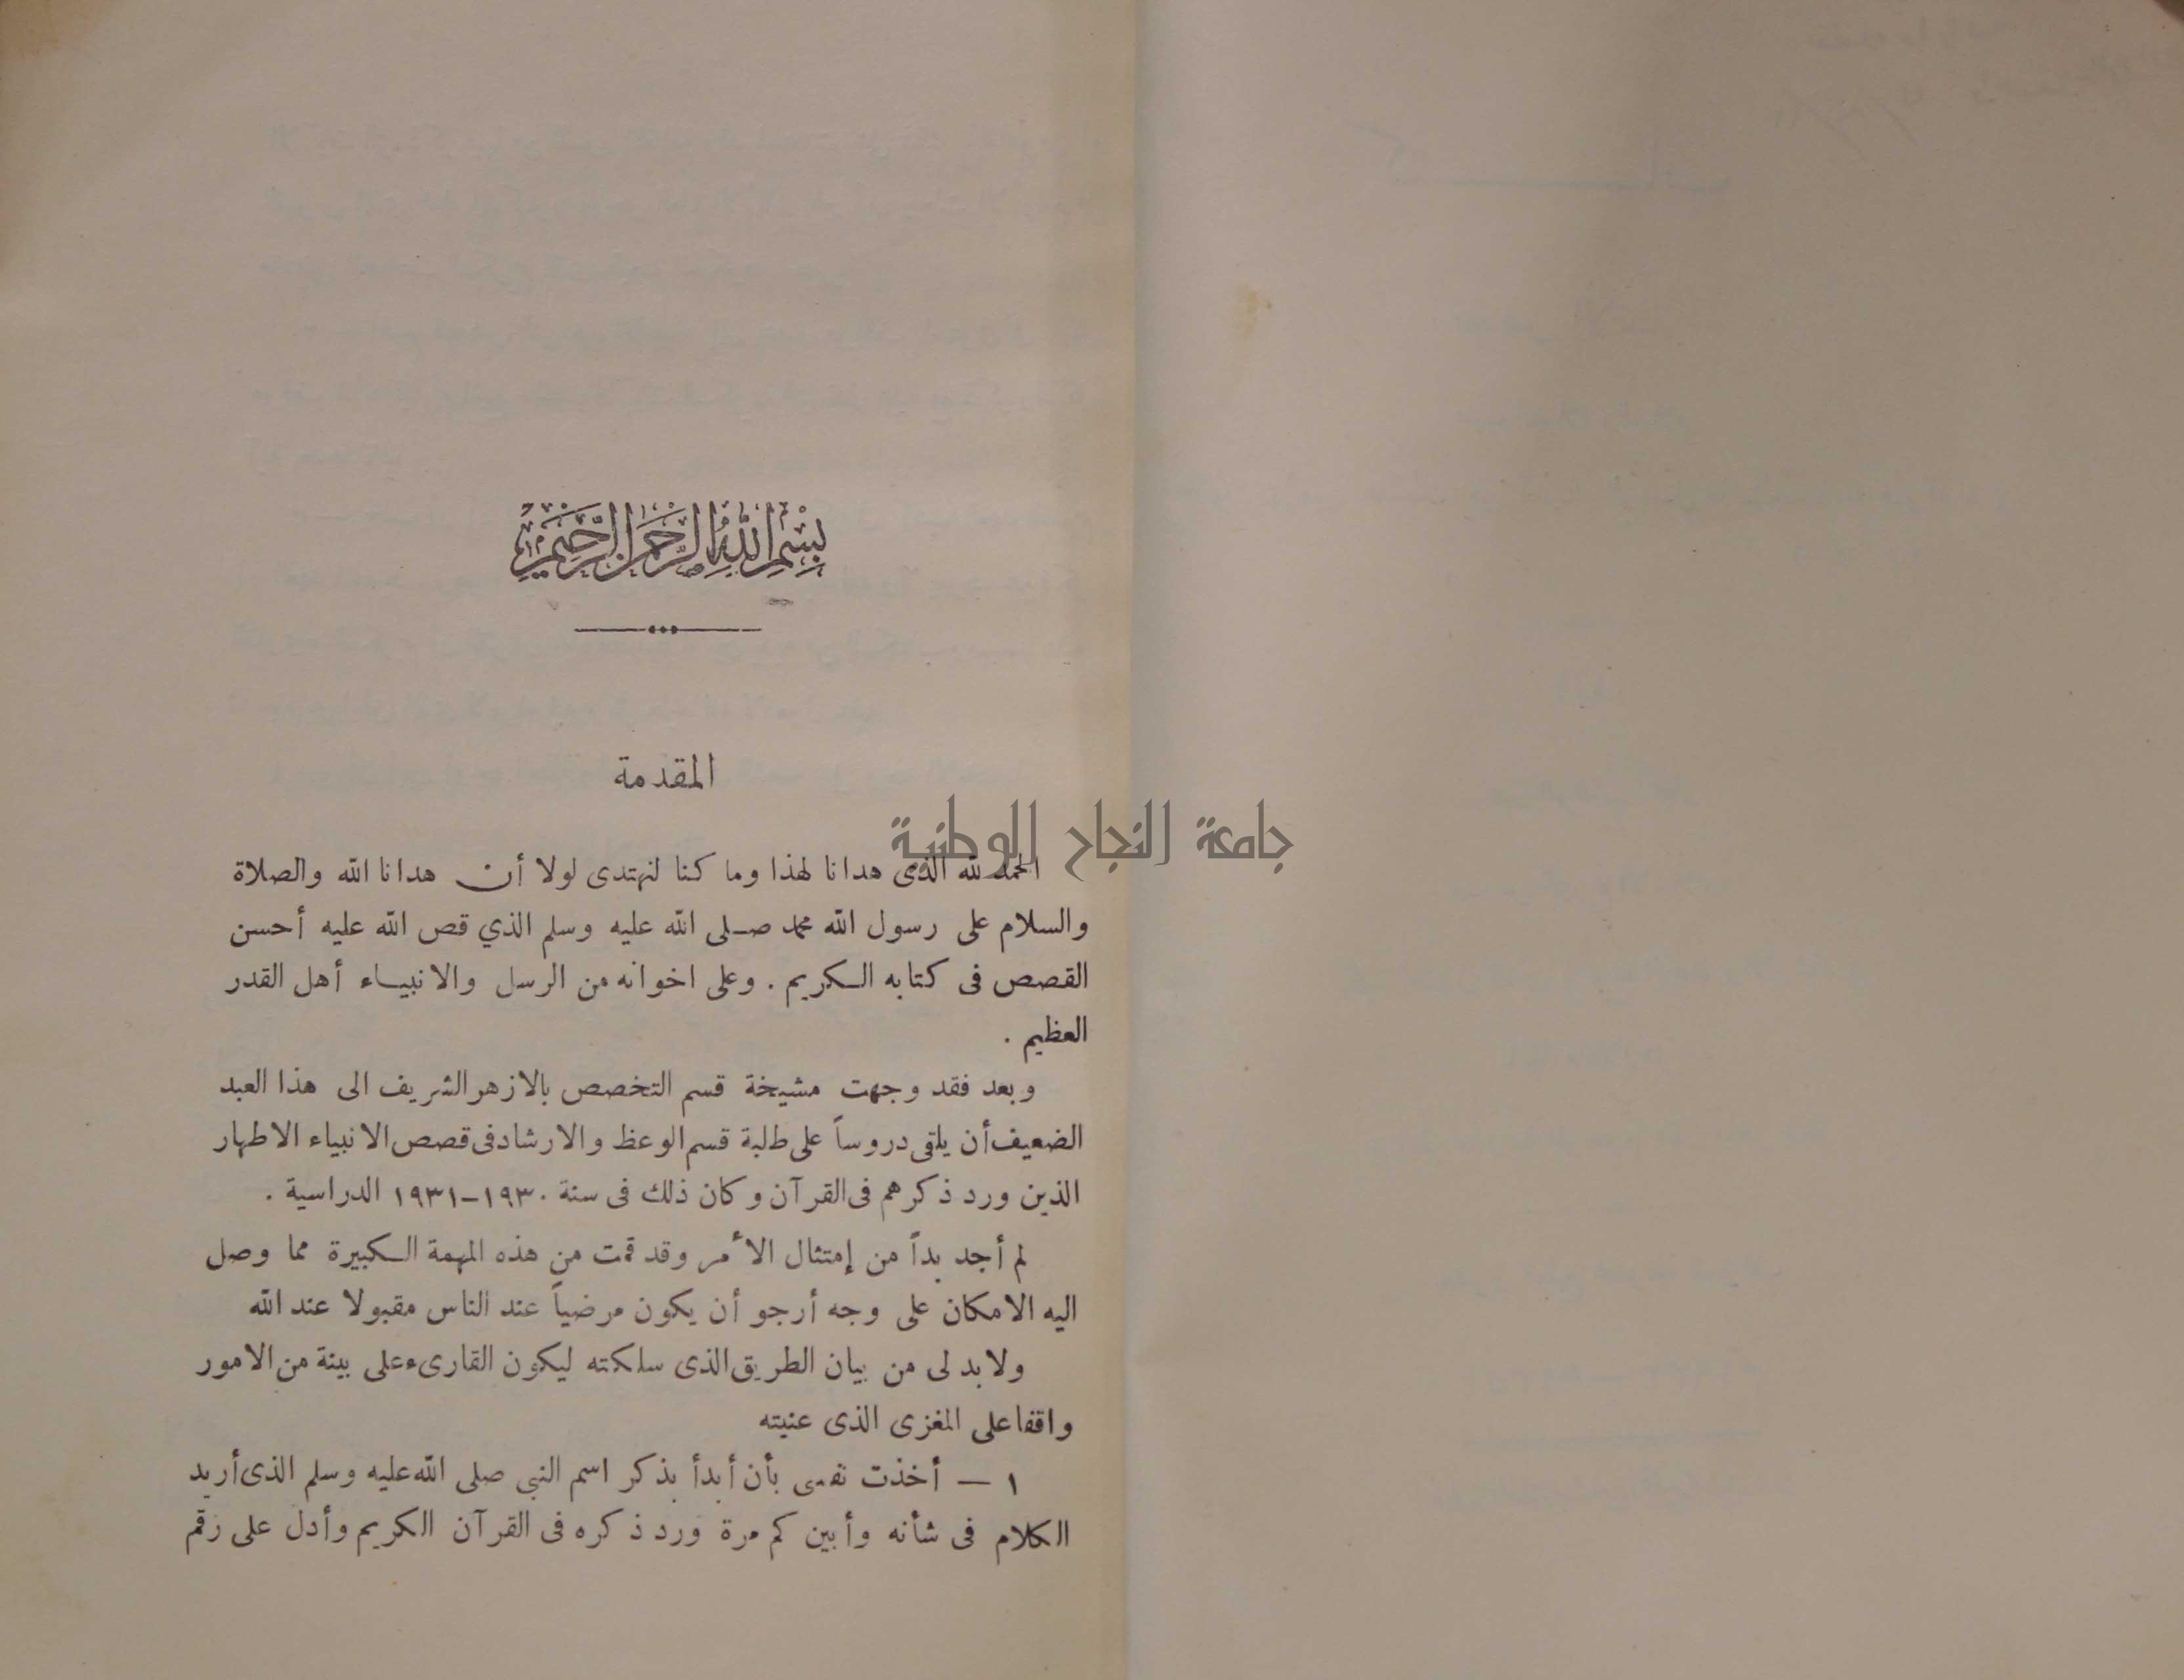 بسم الله الرحمن الرحيم
المقدمة
جامعة النجاح الوطنية
الحمد لله الذى هدانا لهذا وما كنا لنهتدى لولا أن هدانا الله والصلاة
والسلام على رسول الله محمد صلى الله عليه وسلم الذي قص الله عليه أحسن
القصص فى كتابه الكريم . وعلى اخوانه من الرسل والانبياء أهل القدر
العظيم .
وبعد فقد وجهت مشيخة قسم التخصص بالازهر الشريف الى هذا العبد
الضعيف أن يلقى دروساً على طلبة قسم الوعظ والارشاد فى قصص الانبياء الاطهار
الذين ورد ذكرهم فى القرآن وكان ذلك فى سنة ١٩٣٠–١٩٣١ الدراسية .
لم أجد بداً من إمتثال الأمر وقد قمت من هذه المهمة الكبيرة مما وصل
اليه الامكان على وجه أرجو أن يكون مرضياً عند الناس مقبولا عند الله
ولا بد لى من بيان الطريق الذى سلكته ليكون القارىء على بينة من الامور
واقفا على المغزى الذى عنيته
١ — أخذت نفسى بأن أبدأ بذكر اسم النبى صلى الله عليه وسلم الذى أريد
الكلام فى شأنه وأبين كم مرة ورد ذكره فى القرآن الكريم وأدل على رقم